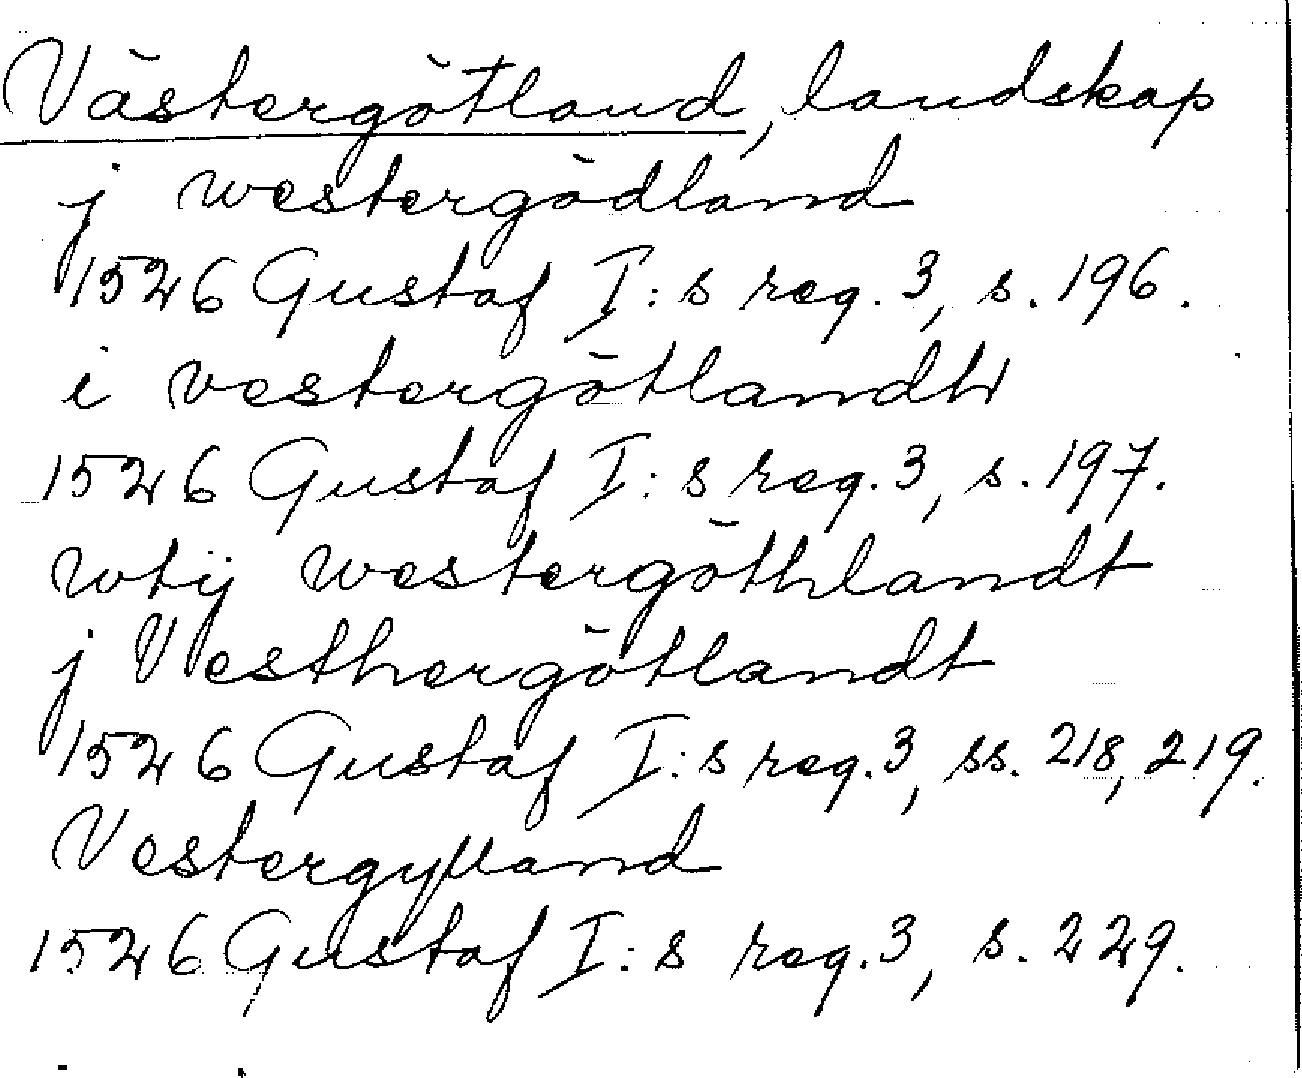 Västergötland, landskap
j westergödland
1526 Gustaf I:s reg. 3, s. 196.
i vestergötlandh
1526 Gustaf I:s reg. 3, s. 197.
wtij westergöthlandt
j Vesthergötlandt
1526 Gustaf I:s reg. 3, ss. 218, 219.
Vestergylland
1526 Gustaf I:s reg. 3, s. 229.